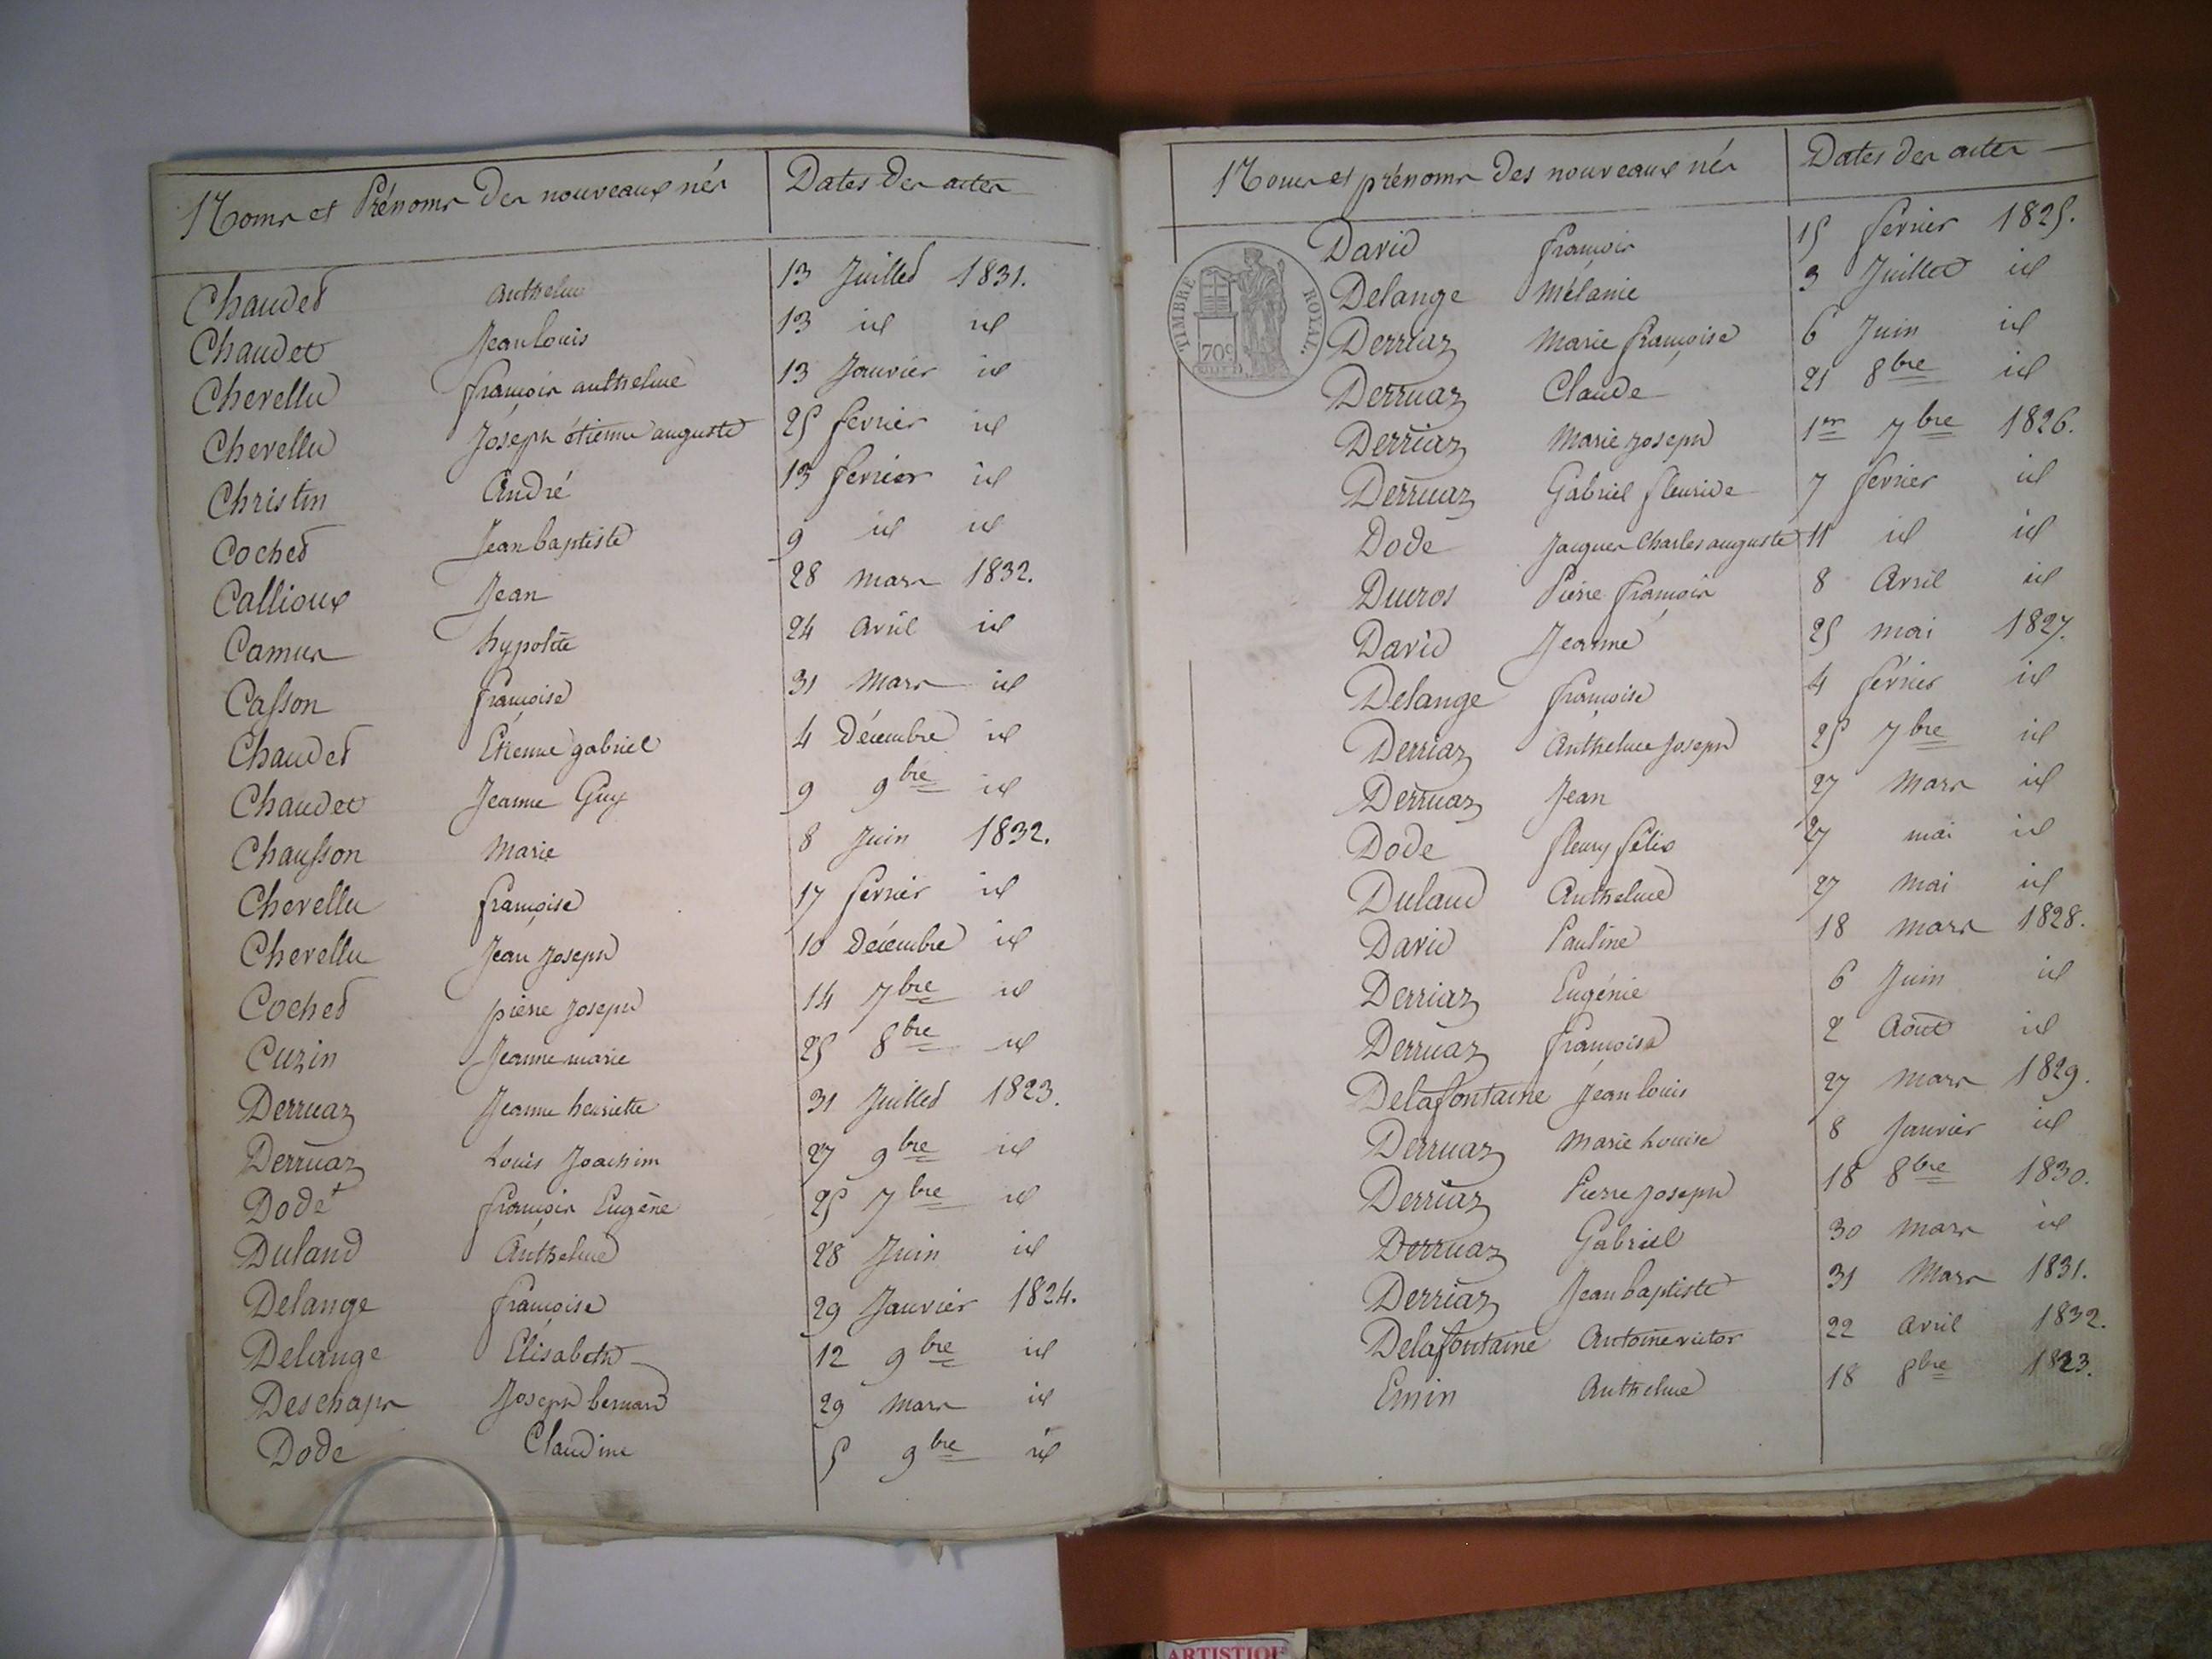 Noms et Prénoms des nouveaux nés Dates des actes
Chaudet anthelme 13 Juillet 1831.
Chaudet Jean louis 13 id id
Chevellu françois anthelme 13 Janvier id
Chevellu Joseph étienne auguste 25 fevrier id
Christin André 13 fevrier id
Cochet Jean baptiste 9 id id
Callioux Jean 28 mars 1832.
Camus hypolite 24 avril id
Casson françoise 31 Mars id
Chaudet Etienne gabriel 4 Décembre id
Chaudet Jeanne Guy 9 9bre id
Chausson Marie 8 Juin 1832.
Chevellu françoise 17 fevrier id
Chevellu Jean Joseph 10 Décembre id
Cochet pierre Joseph 14 7bre id
Cuzin Jeanne marie 25 8bre id
Derruaz Jeanne henriette 31 Juillet 1823.
Derruaz Louis Joachim 27 9bre id
Dode françois Eugène 25 7bre id
Duland Anthelme 28 Juin id
Delange françoise 29 Janvier 1824.
Delange Elisabeth 12 9bre id
Deschaps Joseph bernard 29 mars id
Dode Claudine 5 9bre id
Noms et prénoms des nouveaux nés Dates des actes
TIMBRE ROYAL.
70c
David françois 15 fevrier 1825.
Delange Mélanie 3 Juillet id
Derriaz Marie françoise 6 Juin id
Derruaz Claude 21 8bre id
Derriaz Marie Joseph 1er 7bre 1826.
Derruaz Gabriel fleuride 7 fevrier id
Dode Jacques Charles auguste 11 id id
Ducros Pierre françois 8 Avril id
David Jeanne 25 mai 1827.
Delange françoise 4 février id
Derriaz Anthelme Joseph 25 7bre id
Derruaz Jean 27 Mars id
Dode fleury félix 27 mai id
Duland Anthelme 27 Mai id
David Pauline 18 mars 1828.
Derriaz Eugénie 6 Juin id
Derruaz françoise 2 Août id
Delafontaine Jean louis 27 Mars 1829.
Derruaz Marie Louise 8 Janvier id
Derriaz Pierre Joseph 18 8bre 1830.
Derruaz Gabriel 30 Mars id
Derriaz Jean baptiste 31 Mars 1831.
Delafontaine Antoine victor 22 avril 1832.
Emin Anthelme 18 8bre 1823.
ARTISTIQUE